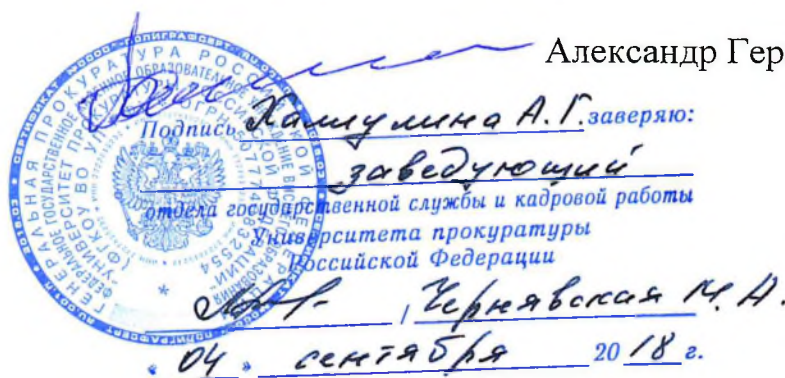 Александр Гер
Подпись Халиулина А.Г. заверяю:
заведующий
отдела государственной службы и кадровой работы
Университета прокуратуры
Российской Федерации
/ Чернявская М.А.
« 04 » сентября 20 18 г.
ГЕНЕРАЛЬНАЯ ПРОКУРАТУРА РОССИЙСКОЙ